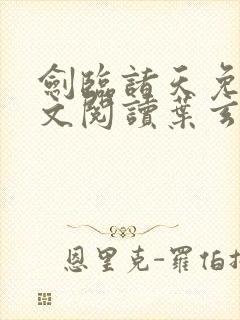 劍臨諸天免
文閱讀葉玄
恩里克-羅伯托